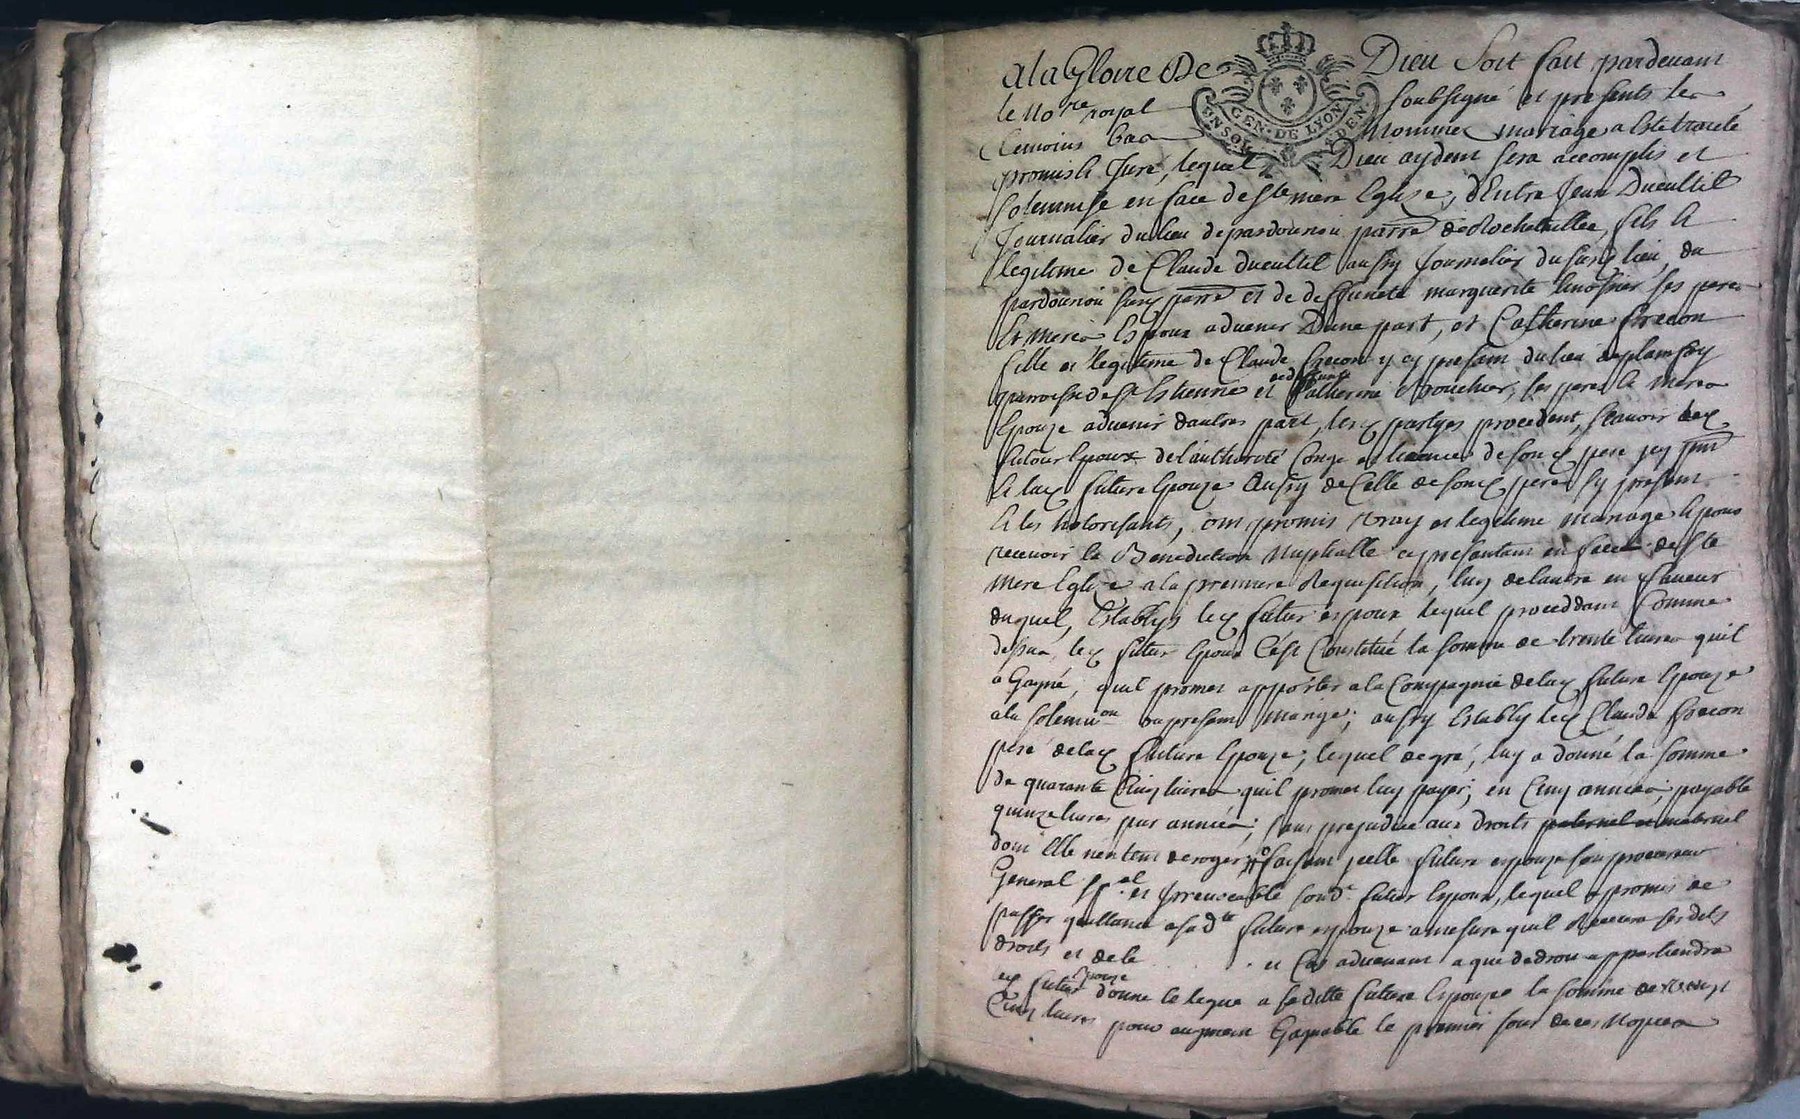 a la Gloire De Dieu Soit fait pardevant
le No.re royal soubsigné et presents les
temoins bas Nommes mariage a este traicté
promis et Juré, lequel Dieu aydent sera accomplis et
solemnise en face de Ste mere Eglize, d'Entre Jean Ducultil
Journalier du lieu de pardounou parre de Rochetaillee, fils et
legitime de Claude ducultil aussy Journalier du susd lieu du
pardounou susd parre et de deffuncte marguerite ses pere
et mere Espoux advenir D'une part, et Catherine Frecon
fille et legitime de Claude frecon y cy present du lieu de planfoy
parroisse de St Estienne et de deffuncte Catherine ses pere et mere
Epouze advenir dautres part, lesd partyes procedent, scavoir led
futur Epoux de l'authorité Conge et licence de sond pere
et lad future Epouze aussy de Celle de sond pere sy present
et les hotorisants, ont promis vray et legitime mariage
recevoir la Benediction Nuptialle en face de Ste
mere Eglize a la premiere Requisition, luy de lautre en faveur
duquel, Establys led futur espoux lequel proceddant Comme
dessus, led futur Epoux C'est Constitué la somme de trente livres quil
a Gagné, quil promet apporter a la Compagnie de lad future Epouze
a la solemn.on du present mariage; aussy Establÿ led Claude frecon
pere de lad future Epouze, lequel de gré, luy a donné la somme
de quarante Cinq livres quil promet luy payer, en Cinq années, payable
quinze livres par année; sans prejudice aux droits paternel et maternel
dont Elle n'entent deroger, faisant jcelle future espouze son procureur
General sp.el et Irrevocable sond.t futur Espoux, lequel a promis de
passer quittance a sad.te future espouze a mesure quil Recevra ses dits
droits et de le et Cas advenant a qui de droit appartiendra
led futur Epouze donne et legue a sa ditte future Espouze la somme de vingt
Cinq livres pour augment Gagnable le premier Jour de ces Nopces
GEN. DE LYON